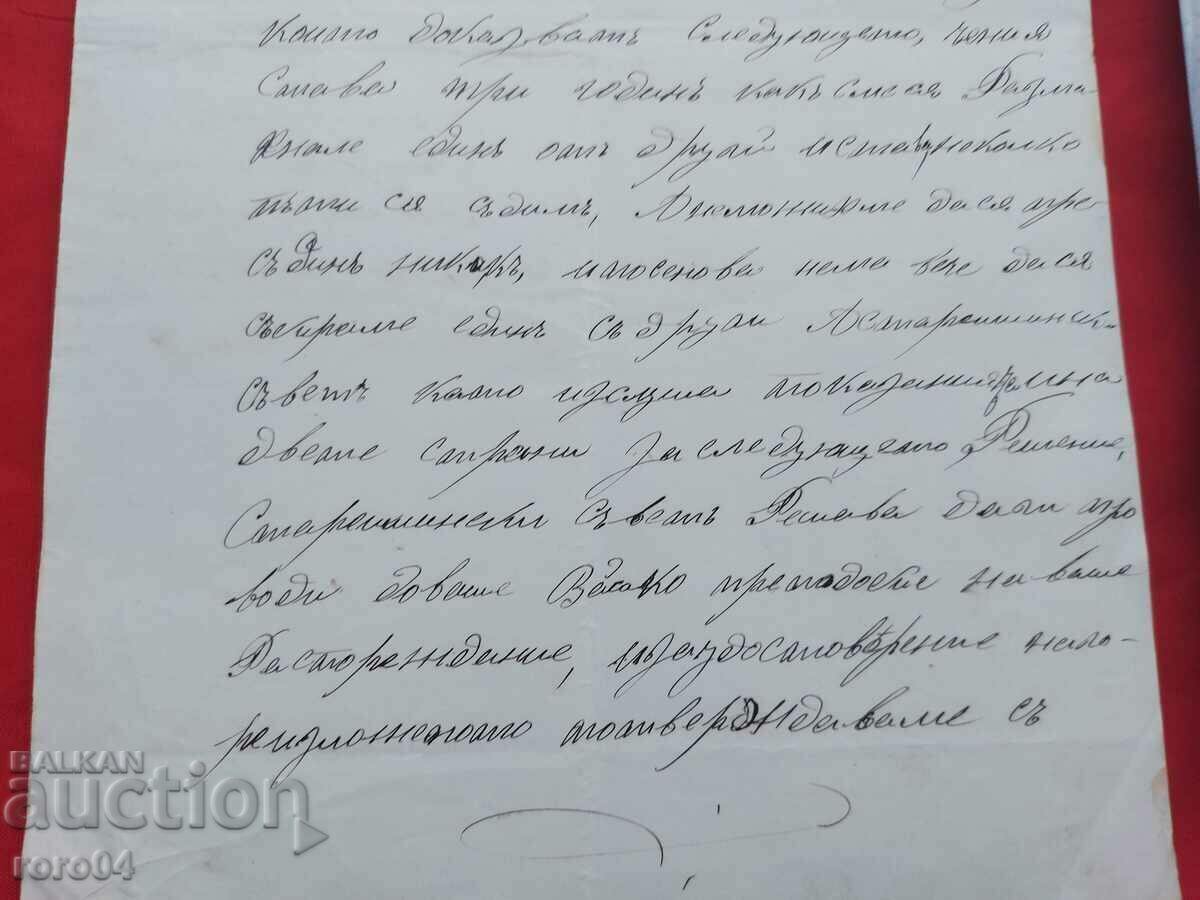 които доказватъ следующето, че ния
става три годинъ какъ смеся Разма-
хнале единъ отъ други и ста неколко
пъти ся съдимъ, А немонжиме да ся пре-
съдинъ никакъ, и посенова нема вече да ся
събираме единъ съ други А Старешински
съветъ като изслуша показанията на
двете страни за следующето Решение,
Старешински съветъ Решава да ги про
води до ваше преподобие на ваше
Распореждание, и за удостоверение на го-
реизложеното потверждаваме съ
BALKAN
auction
roro04